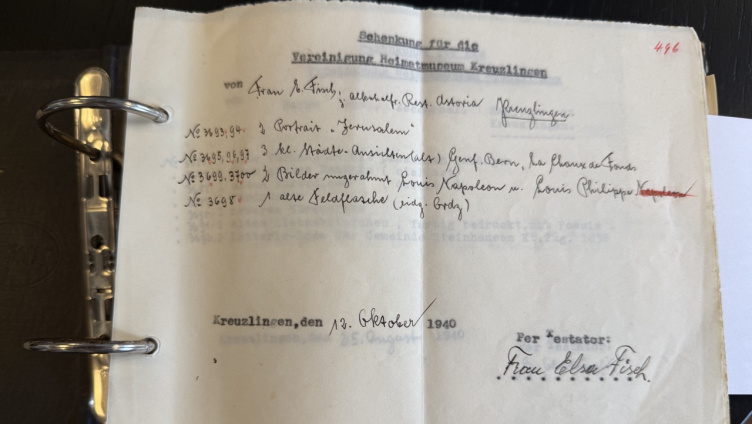 496
Schenkung für die
Vereinigung Heimatmuseum Kreuzlingen
von Frau E. Fisch, alkoholfr. Rest. Astoria Kreuzlingen.
No 3693,94. 2 Portrait "Jerusalem"
No 3695,96,97 3 kl. Städte-Ansichten (alt) Genf. Bern, La Chaux de Fonds
No 3699.3700 2 Bilder ungerahmt Louis Napoleon u. Louis Philippe Napoleon
No 3698 1 alte Feldflasche (eidg. Ordz)
Kreuzlingen,den 12. Oktober 1940
Per Testator:
Frau Elsa Fisch.